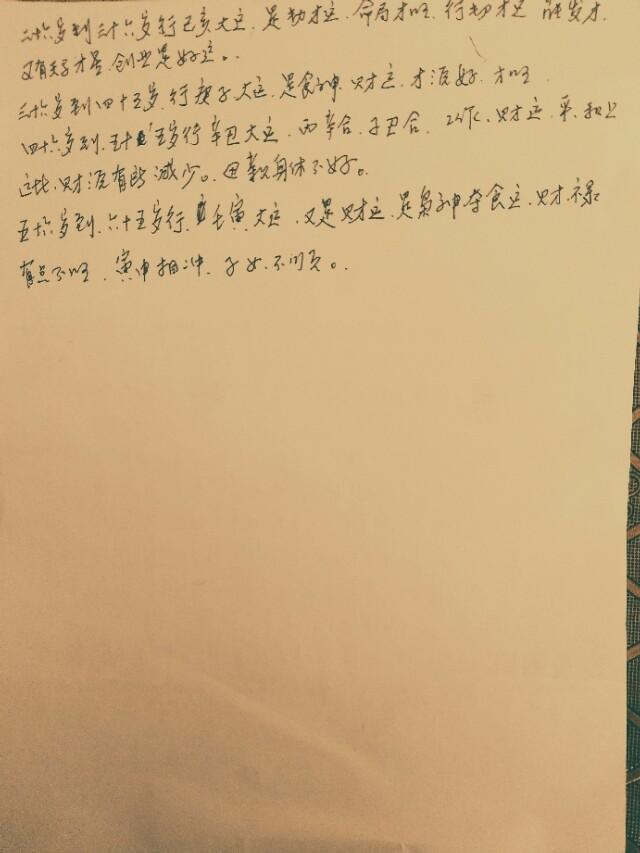 二十六岁到三十六岁行己亥大运、是劫才运、命局才旺、行劫才运 能发才
又有天才星、创业是好运。
三十六岁到四十五岁、行庚子大运、是食神、财运、才源好、才旺、
四十六岁到、五十五岁行辛丑大运、丙辛合、子丑合、工作、财运、平、和上
这比、财源有所减少。母亲身体不好。
五十六岁到、六十五岁行、壬寅大运、又是财运、是枭神夺食运、财才禄
有点不旺、寅申相冲、子女、不顺。